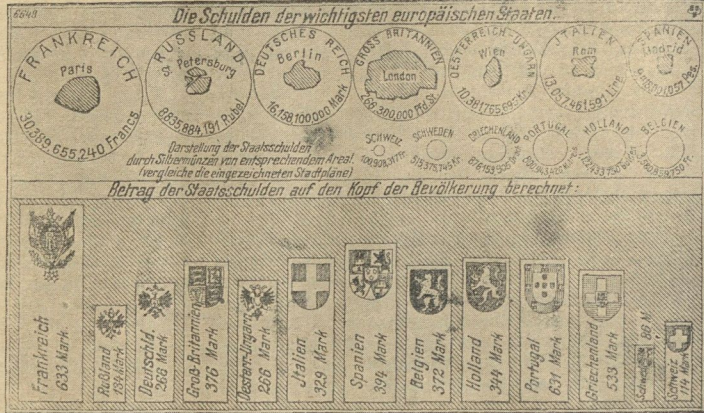 6649
Die Schulden der wichtigsten europäischen Staaten.
FRANKREICH
Paris
30,389,655,240 Francs
RUSSLAND
St. Petersburg
8835,884,191 Rubel
DEUTSCHES REICH
Berlin
16,158,100,000 Mark
GROSS BRITANNIEN
London
Pfd. St.
OESTERREICH-UNGARN
Wien
ITALIEN
Rom
13,057,461,591 Lire
SPANIEN
Madrid
SCHWEIZ
SCHWEDEN
GRIECHENLAND
PORTUGAL
HOLLAND
BELGIEN
Darstellung der Staatsschulden
durch Silbermünzen von entsprechendem Areal.
(vergleiche die eingezeichneten Stadtpläne)
Betrag der Staatsschulden auf den Kopf der Bevölkerung berechnet:
Frankreich
633 Mark.
Rußland
Mark
Deutschld.
266 Mark
Groß-Britannien
376 Mark
Oesterr.-Ungarn
266 Mark
Italien
329 Mark
Spanien
394 Mark
Belgien
372 Mark
Holland
344 Mark
Portugal
631 Mark
Griechenland
533 Mark
Schweiz
114 Mark